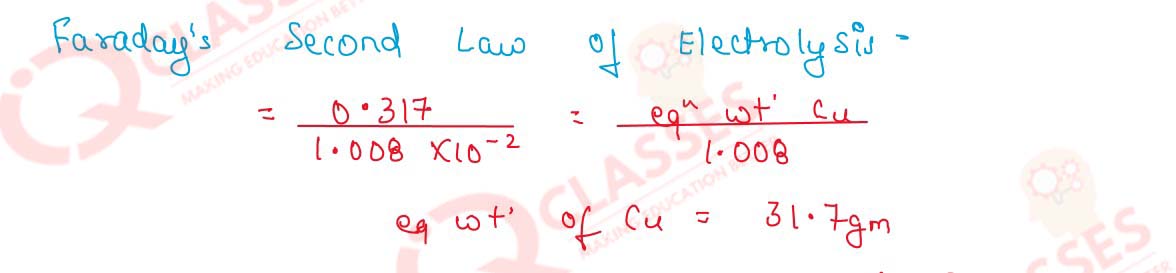 Faraday's Second Law of Electrolysis -
= 0.317 / 1.008 × 10⁻² = eqⁿ wt' Cu / 1.008
eq wt' of Cu = 31.7gm
IQ CLASSES
MAKING EDUCATION BE
CLASSES
MAKING EDUCATION BETTER
SSES